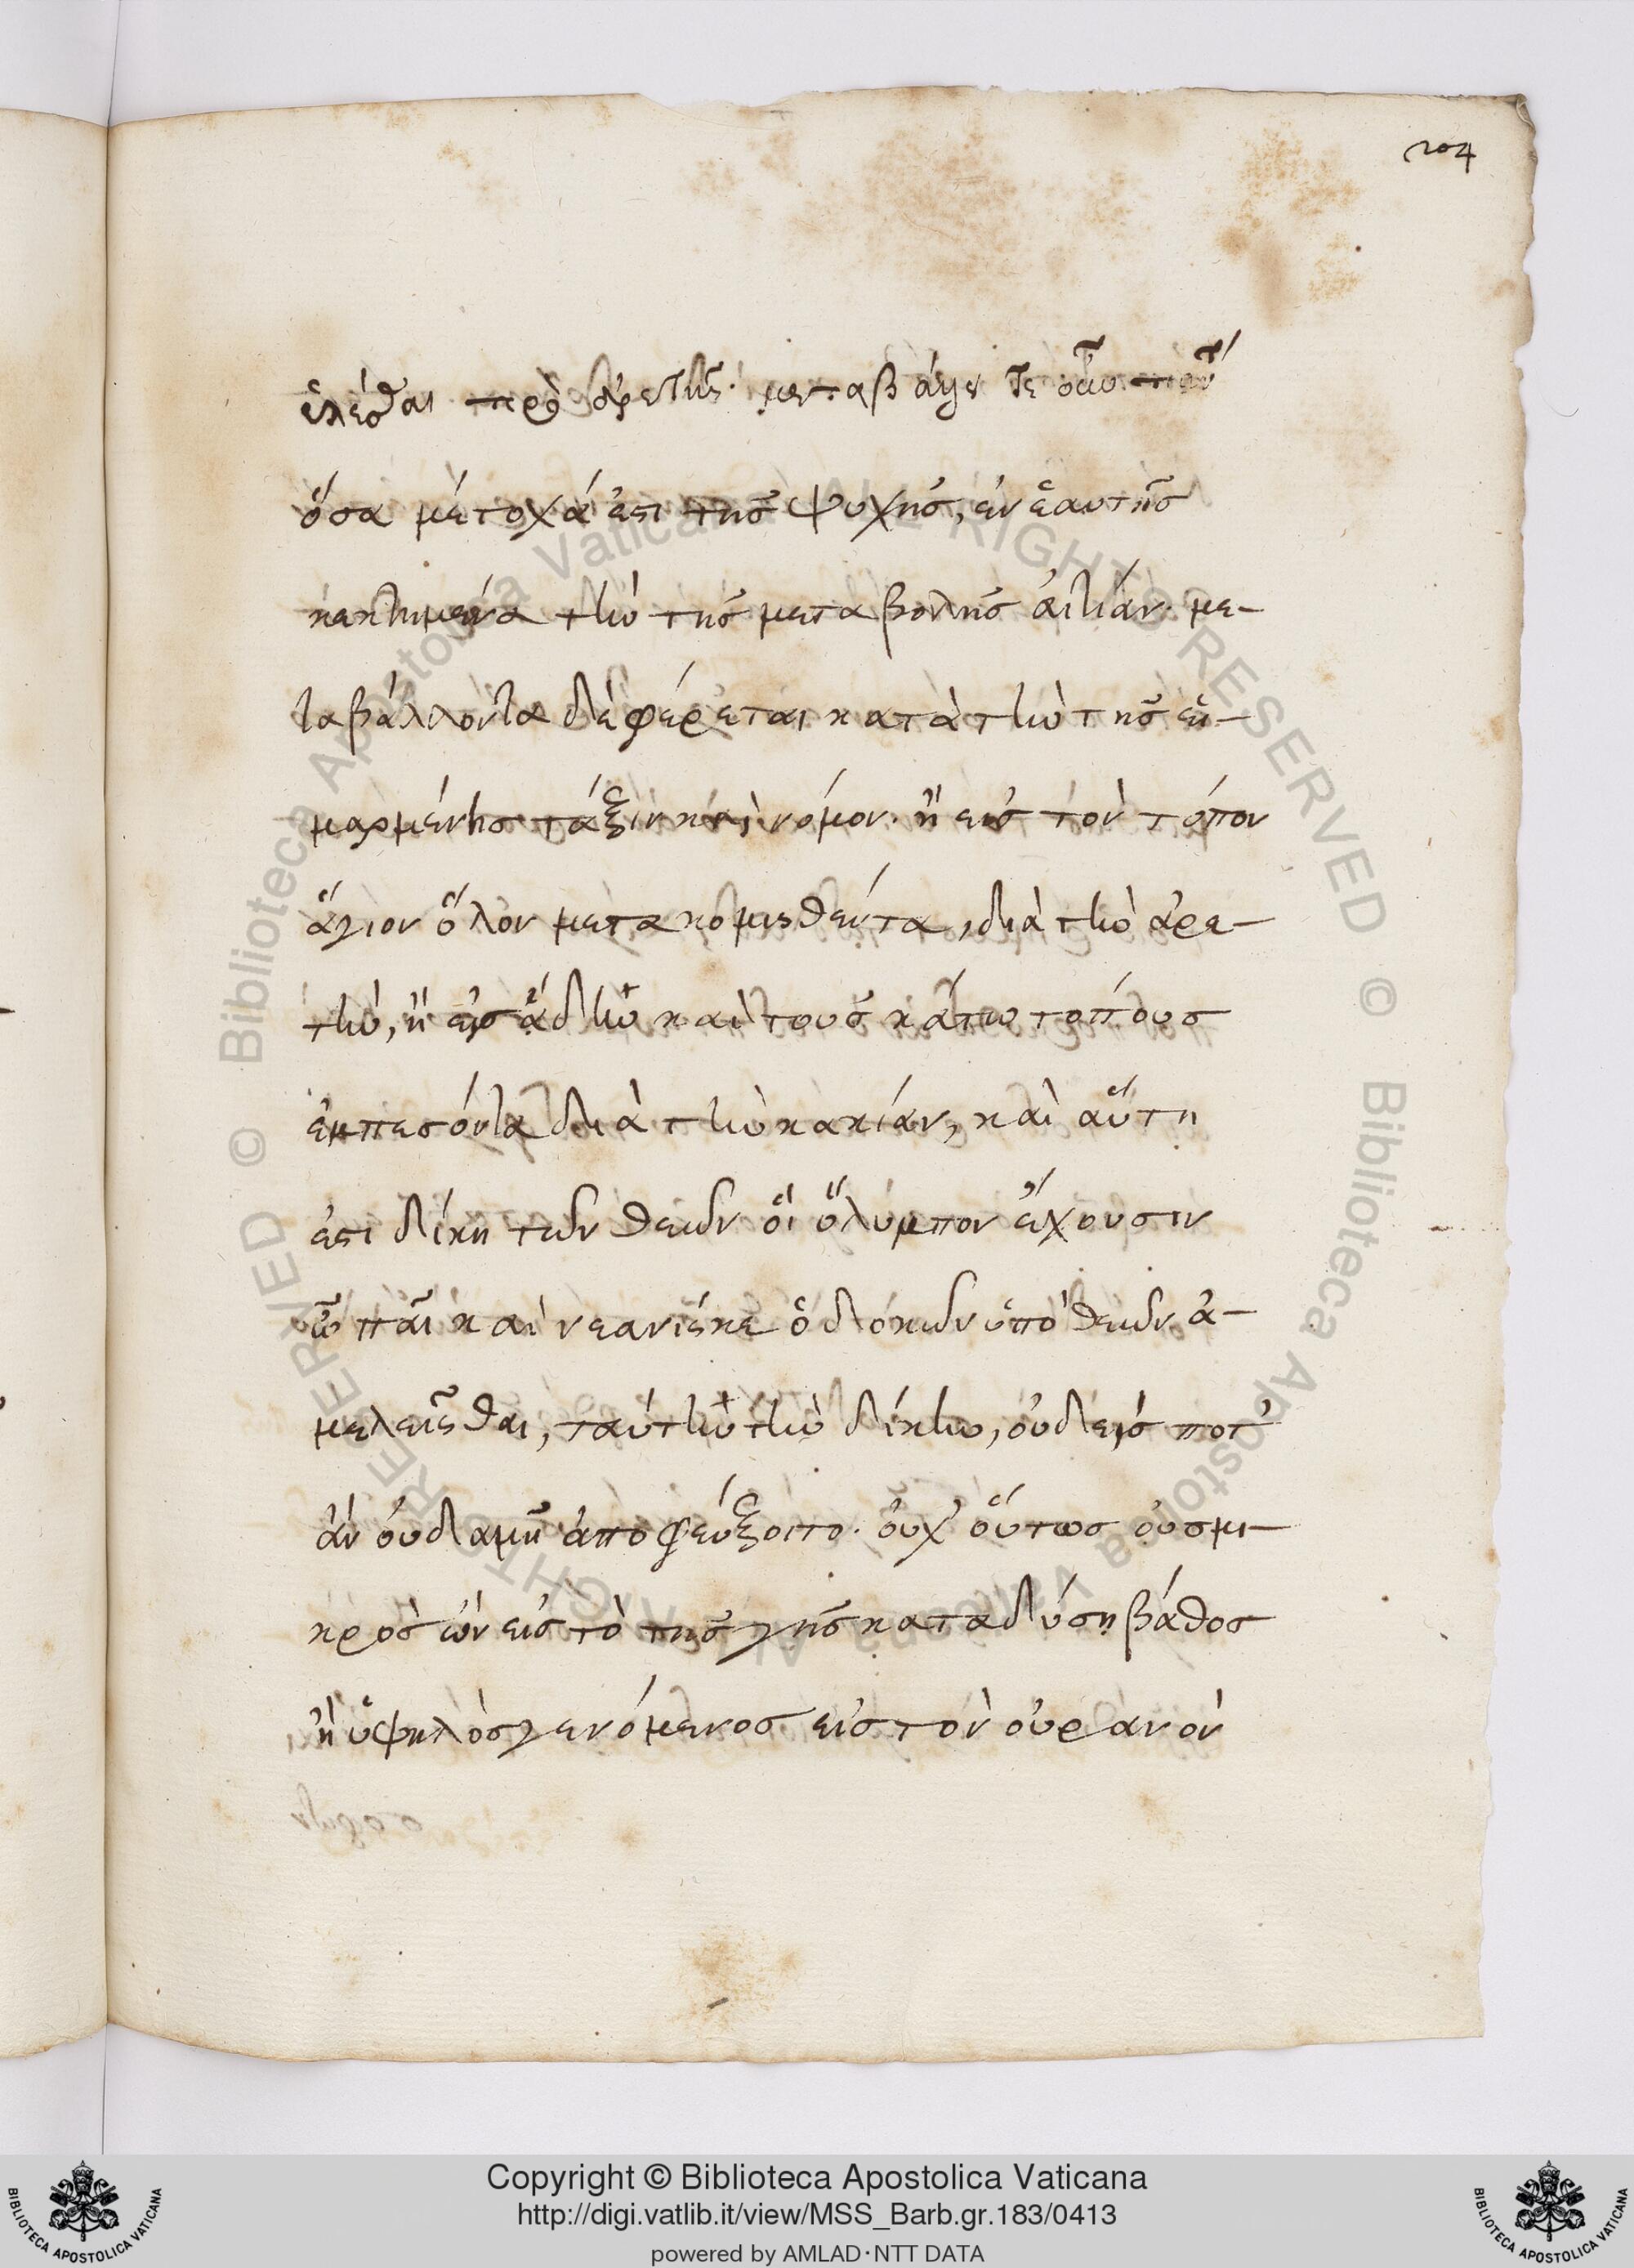 204
ἑλέσθαι πρὸ ἀρετῆς· μεταβάλλει τε οὖν πάνθ'
ὅσα μέτοχά ἐστι τῆς ψυχῆς, ἐν ἑαυτῆς
κεκτημένα τὴν τῆς μεταβολῆς αἰτίαν· με-
ταβάλλοντα δὲ φέρεται κατὰ τὴν τῆς εἱ-
μαρμένης τάξιν καὶ νόμον. ἢ εἰς τὸν τόπον
ἅγιον ὅλον μετακομισθέντα, διὰ τὴν ἀρε-
τήν, ἢ εἰς ᾅδην καὶ τοὺς κάτω τόπους
ἐμπεσόντα διὰ τὴν κακίαν, καὶ αὕτη
ἐστι δίκη τῶν θεῶν οἳ ὄλυμπον ἔχουσιν
ὦ παῖ καὶ νεανίσκε ὁ δοκῶν ὑπὸ θεῶν ἀ-
μελεῖσθαι, ταύτην τὴν δίκην, οὐδείς ποτ'
ἂν οὐδαμῆ ἀποφεύξοιτο. οὐχ οὕτως οὐ σμι-
κρὸς ὢν εἰς τὸ τῆς γῆς καταδύσῃ βάθος
ἢ ὑψηλὸς γενόμενος εἰς τὸν οὐρανὸν
Copyright © Biblioteca Apostolica Vaticana
http://digi.vatlib.it/view/MSS_Barb.gr.183/0413
powered by AMLAD·NTT DATA
BIBLIOTECA APOSTOLICA VATICANA
BIBLIOTECA APOSTOLICA VATICANA
© Biblioteca Apostolica Vaticana ALL RIGHTS RESERVED
© Biblioteca Apostolica Vaticana ALL RIGHTS RESERVED